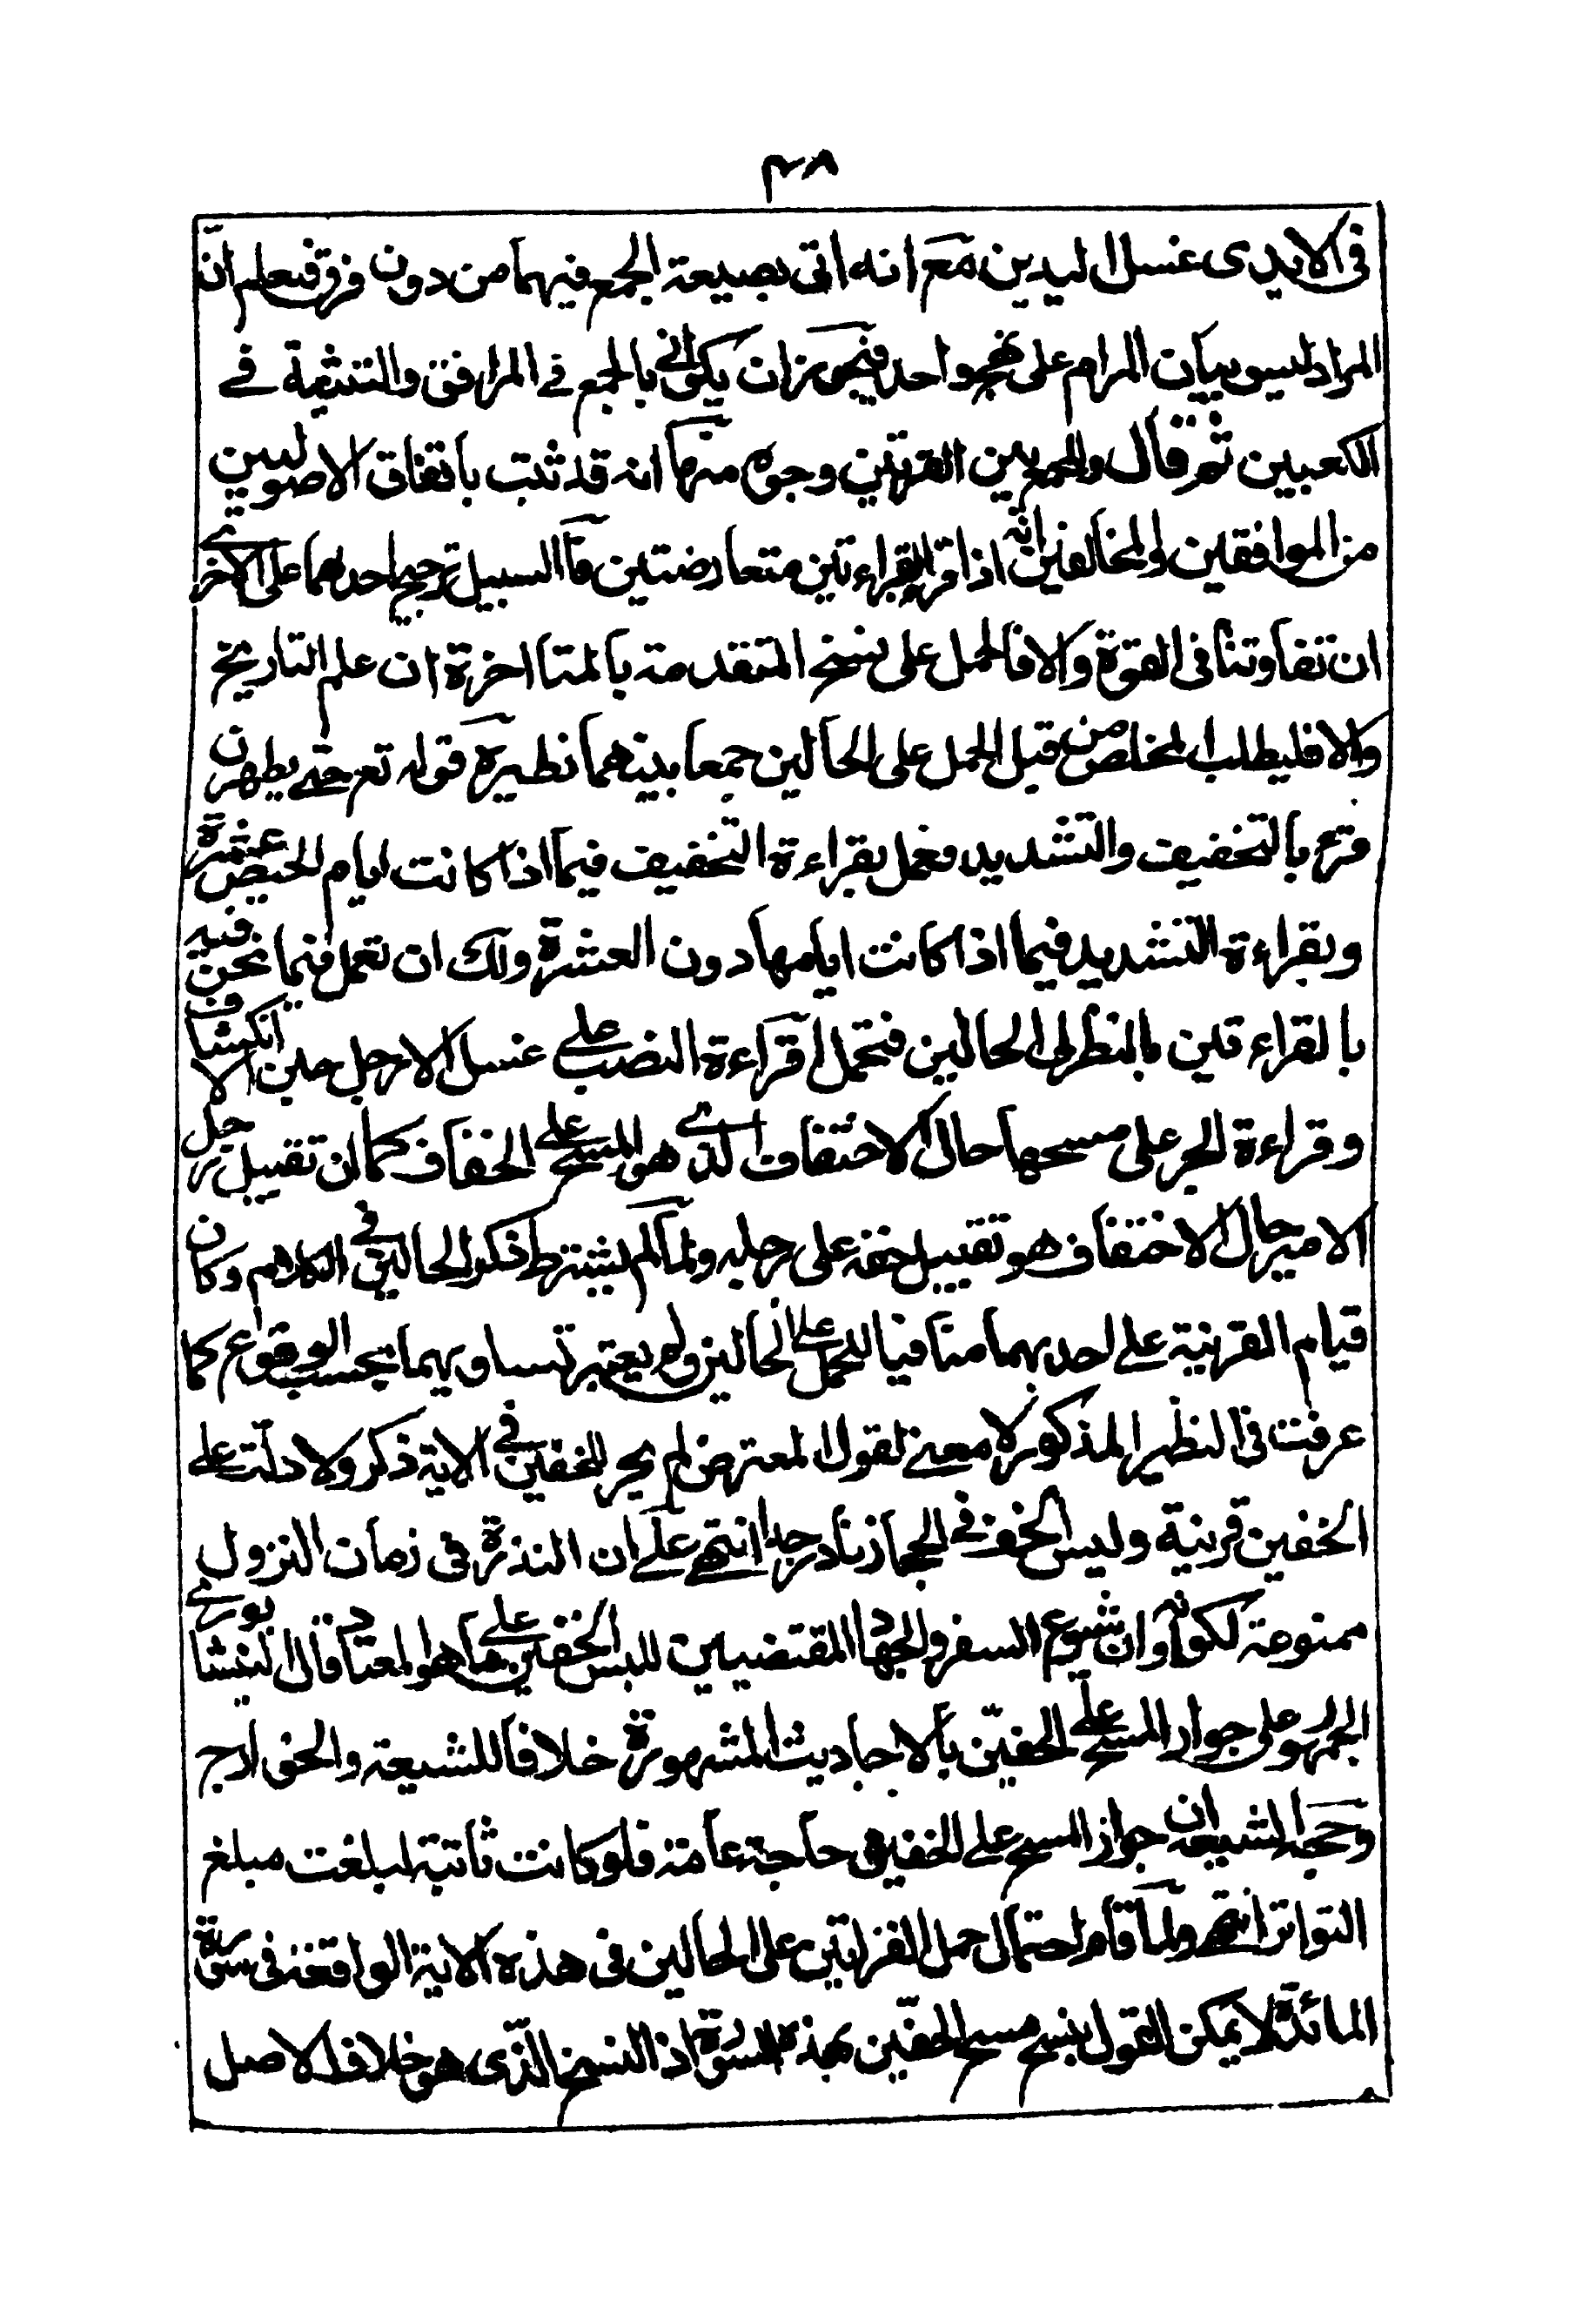 ٣٨
فى الايدى غسل اليدين مع انه اتى بصيغة الجمع فيهما من دون فرق فعلم ان
المراد ليس بيان المرام على نهج واحد فيجوز ان يكتفى بالجمع فى المرافق والتثنية فى
الكعبين ثم قال والجمع بين القراءتين وجوه منها انه قد ثبت باتفاق الاصوليين
من الموافقين والمخالفين انه اذا قرئ بقراءتين متعارضتين فالسبيل ترجيح احدهما على الاخرى
ان تفاوتتا فى القوة والا فالحمل على نسخ المتقدمة بالمتاخرة ان علم التاريخ
والا فليطلب المخلص من قبل الحمل على الحالين جمعا بينهما نظيره قوله تع حتى يطهرن
قرئ بالتخفيف والتشديد فعمل بقراءة التخفيف فيما اذا كانت ايام الحيض عشرة
وبقراءة التشديد فيما اذا كانت ايامها دون العشرة ولك ان تعمل فيما نحن فيه
بالقراءتين بالنظر الى الحالين فتحمل قراءة النصب على غسل الارجل حين انكشاف الا
وقراءة الجر على مسحها حال الاختفاف الذى هو المسح على الخفاف كما ان تقبيل رجل
الامير حال الاختفاف هو تقبيل خفه على رجليه ولما لم يشترط ذكر الحالين فى الكلام وكان
قيام القرينة على احدهما منافيا للحمل على الحالين ولم يعتبر تساويهما بحسب الوقوع كما
عرفت فى النظير المذكور لا معنى لقول المعترض لم يجر للخفين فى الاية ذكر ولا دلت على
الخفين قرينة وليس الخف فى الحجاز نادر جدا انتهى على ان الندرة فى زمان النزول
ممنوعة لكونه اوان شيوع السفر والجهاد المقتضيين للبس الخفين على ما هو المعتاد قال النيشابورى
الجمهور على جواز المسح على الخفين بالاحاديث المشهورة خلافا للشيعة والخوارج
وحجة الشيعة ان جواز المسح على الخفين حاجة عامة فلو كانت ثابتة لبلغت مبلغ
التواتر انتهى ولما قام احتمال حمل القراءتين على الحالين فى هذه الاية الواقعة فى سورة
المائدة لا يمكن القول بنسخ مسح الخفين بهذه السورة اذ النسخ الذى هو خلاف الاصل